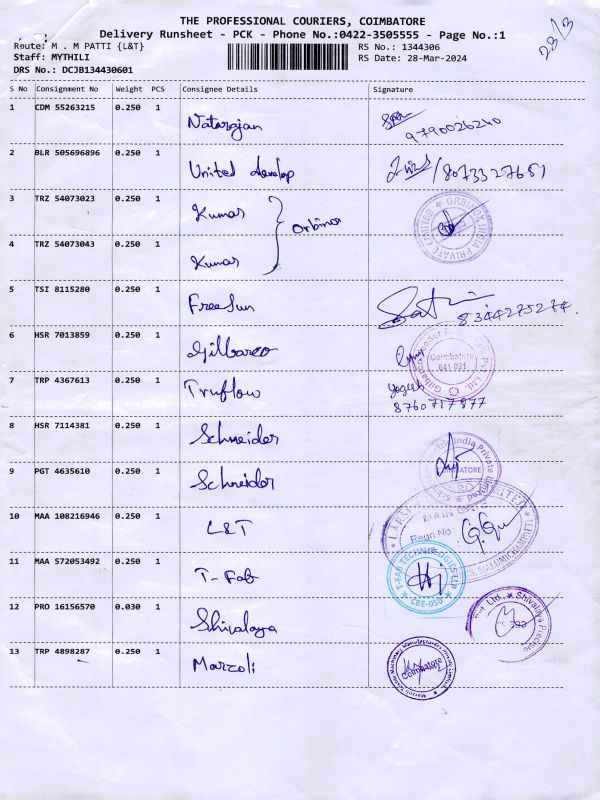 THE PROFESSIONAL COURIERS, COIMBATORE
Delivery Runsheet - PCK - Phone No.:0422-3505555 - Page No.:1
Route: M . M PATTI {L&T}
Staff: MYTHILI
DRS No.: DCJB134430601
RS No.: 1344306
RS Date: 28-Mar-2024
28/3
S No Consignment No Weight PCS Consignee Details Signature
1 CDM 55263215 0.250 1 Natarajan
9790026240
2 BLR 505696896 0.250 1 United develop /8073327651
3 TRZ 54073023 0.250 1 Kumar
Orbinox
4 TRZ 54073043 0.250 1 Kumar
ORBINOX INDIA PRIVATE LIMITED
5 TSI 8115280 0.250 1 Freesun
8344275274.
6 HSR 7013859 0.250 1 Gilbarco
Coimbatore
641 021
Pvt. Ltd.
7 TRP 4367613 0.250 1 Truflow Yogesh
8760717877
8 HSR 7114381 0.250 1 Schneider
India Private
9 PGT 4635610 0.250 1 Schneider
10 MAA 108216946 0.250 1 L&T
MAIN GATE
Regn.No:
11 MAA 572053492 0.250 1 T-Fab
T-FAB TECHNOLOGIES LLP
CBE-050
12 PRO 16156570 0.030 1 Shivalaya
Pvt. Ltd. Shivalaya Precision
13 TRP 4898287 0.250 1 Marzoli
Coimbatore